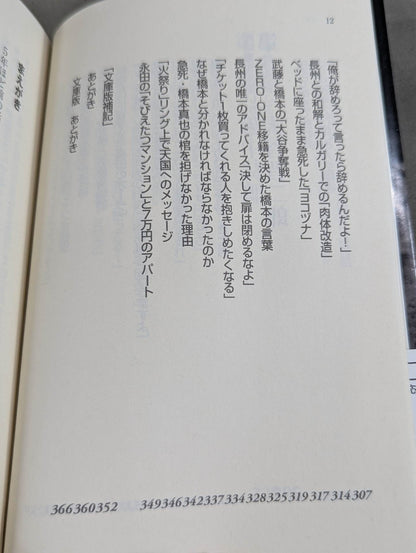 12
「俺が辞めろって言ったら辞めるんだよ!」 307
長州との和解とカルガリーでの「肉体改造」 314
ベッドに座ったまま急死した「ヨコヅナ」 317
武藤と橋本の「大谷争奪戦」 319
ZERO-ONE移籍を決めた橋本の言葉 325
長州の唯一のアドバイス「決して扉は閉めるなよ」 328
「チケット一枚買ってくれる人を抱きしめたくなる」 334
なぜ橋本と分かれなければならなかったのか 337
急死・橋本真也の棺を担げなかった理由 342
「火祭り」リング上で天国へのメッセージ 346
永田の「そびえたつマンション」と7万円のアパート 349
「文庫版補記」 352
あとがき 360
文庫版 あとがき 366
まえがき